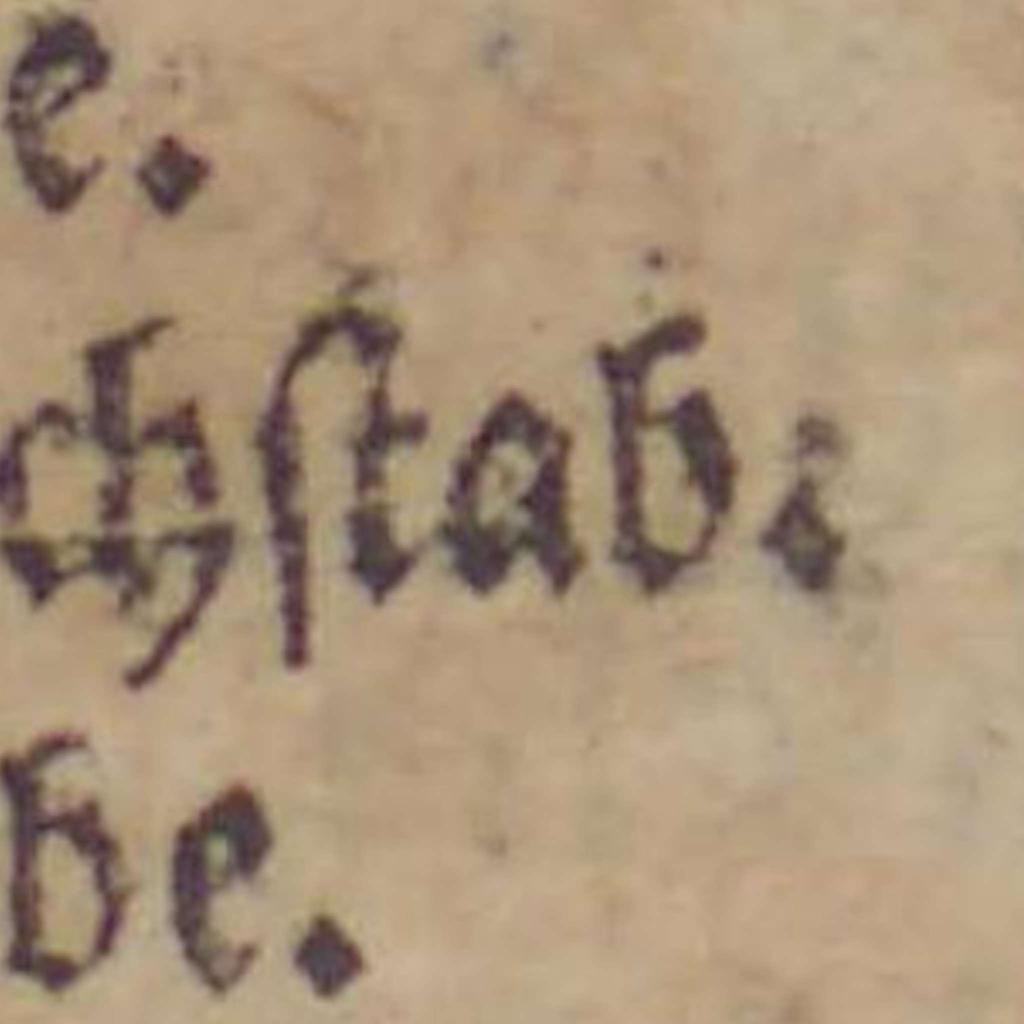 e.
chſtab.
be.